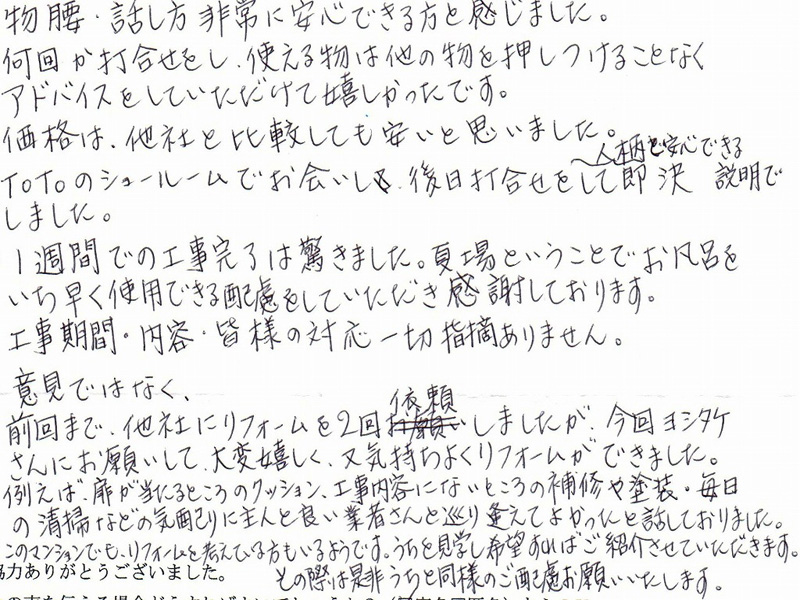 物腰・話し方非常に安心できる方と感じました。
何回か打合せをし、使える物は他の物を押しつけることなく
アドバイスをしていただけて嬉しかったです。
価格は、他社と比較しても安いと思いました。
人柄も安心できる
TOTOのショールームでお会いし、後日打合せをして即決 説明で
しました。
1週間での工事完了は驚きました。夏場ということでお風呂を
いち早く使用できる配慮をしていただき感謝しております。
工事期間・内容・皆様の対応一切指摘ありません。
意見ではなく、
依頼
前回まで、他社にリフォームを2回お願いしましたが、今回ヨシタケ
さんにお願いして、大変嬉しく、又気持ちよくリフォームができました。
例えば、扉が当たるところのクッション、工事内容にないところの補修や塗装・毎日
の清掃などの気配りに主人と良い業者さんと巡り逢えてよかったと話しておりました。
このマンションでも、リフォームを考えている方もいるようです。うちを見学し希望すればご紹介させていただきます。
協力ありがとうございました。
その際は是非うちと同様のご配慮お願いいたします。